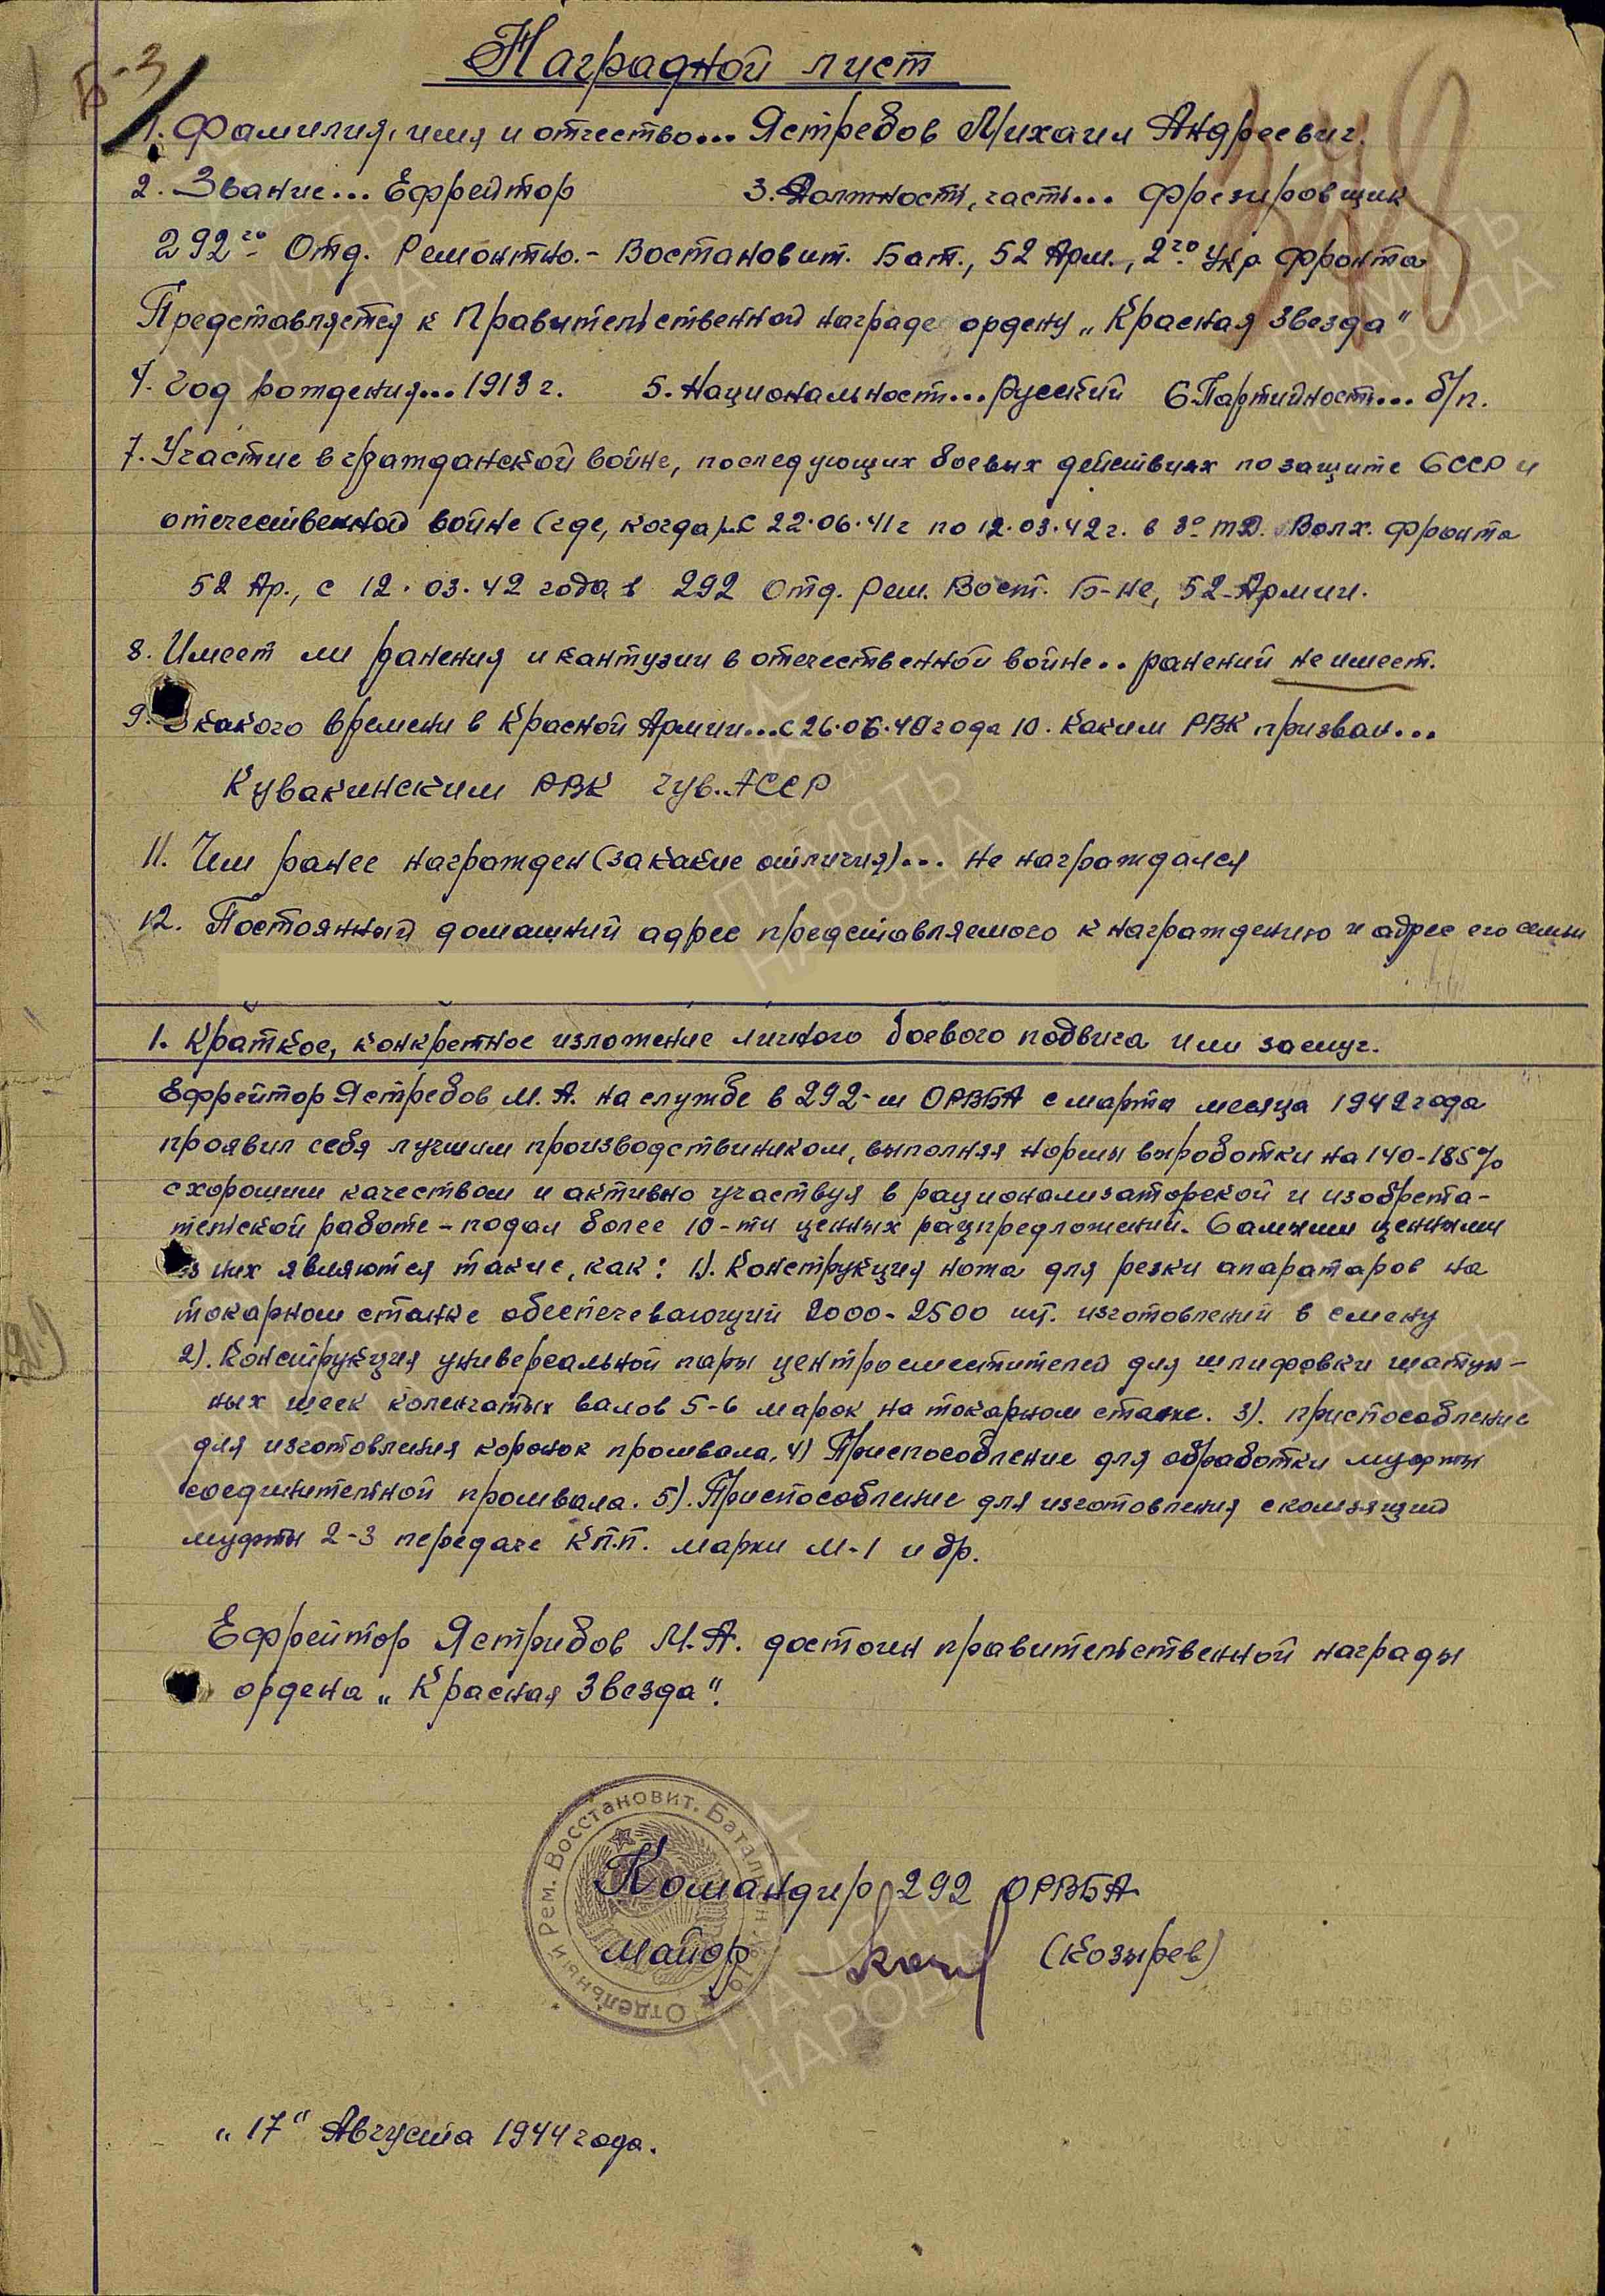 Б-3
Наградной лист
1. Фамилия, имя и отчество... Ястребов Михаил Андреевич.
2. Звание... Ефрейтор 3. Должность, часть... фрезировщик
292го Отд. Ремонтно.- Востановит. Бат., 52 Арм., 2го Укр. Фронта
Представляется к Правительственной награде ордену „Красная Звезда"
4. Год рождения... 1913 г. 5. Национальность... Русский 6. Партийность... б/п.
7. Участие в гражданской войне, последующих боевых действиях по защите СССР и
отечественной войне (где, когда)... С 22.06.41г по 12.03.42г. в 3о тД. Волх. Фронта
52 Ар., с 12.03.42 года в 292 Отд. Рем. Вост. Б-не, 52-Армии.
8. Имеет ли ранения и кантузии в отечественной войне.. ранений не имеет.
9. С какого времени в Красной Армии... с 26.06.40 года 10. Каким РВК призван...
Кувакинским РВК Чув. АССР
11. Чем ранее награжден (за какие отличия)... Не награждался
12. Постоянный домашний адрес представляемого к награждению и адрес его семьи
1. Краткое, конкретное изложение личного боевого подвига или заслуг.
Ефрейтор Ястребов М. А. на службе в 292-м ОРВБА с марта месяца 1942 года
проявил себя лучшим производствиником, выполняя нормы выроботки на 140-185%
с хорошим качеством и активно участвуя в рационализаторской и изобрета-
тельской работе - подал более 10-ти ценных рацпредложений. Самыми ценными
из них являются такие, как: 1). Конструкция ножа для резки апаратаров на
токарном станке обеспечевающий 2000-2500 шт. изготовлений в смену
2). Конструкция универсальной пары центросместителей для шлифовки шатун-
ных шеек коленчатых валов 5-6 марок на токарном станке. 3). приспособление
для изготовления коронок промвала, 4) Приспособление для обработки муфты
соединительной промвала. 5). Приспособление для изготовления скользящий
муфты 2-3 передаче К.П.П. марки М-1 и др.
Ефрейтор Ястрибов М. А. достоин правительственной награды
ордена „Красная Звезда".
Отдельный Рем. Восстановит. Батальон
Командир 292 ОРВБА
майор (Козырев)
„17" Августа 1944 года.
ПАМЯТЬ НАРОДА